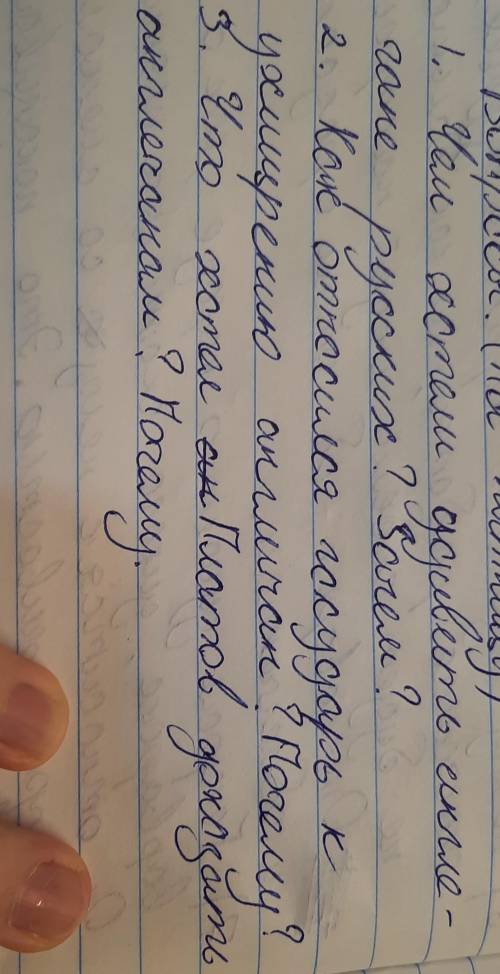 Вопросы. (на
1. Чем хотели удивить англе-
чане русских? Зачем?
2. Как относился государь к
ухищрению англичан? Почему?
3. Что хотел Платов доказать
англечанам? Почему.